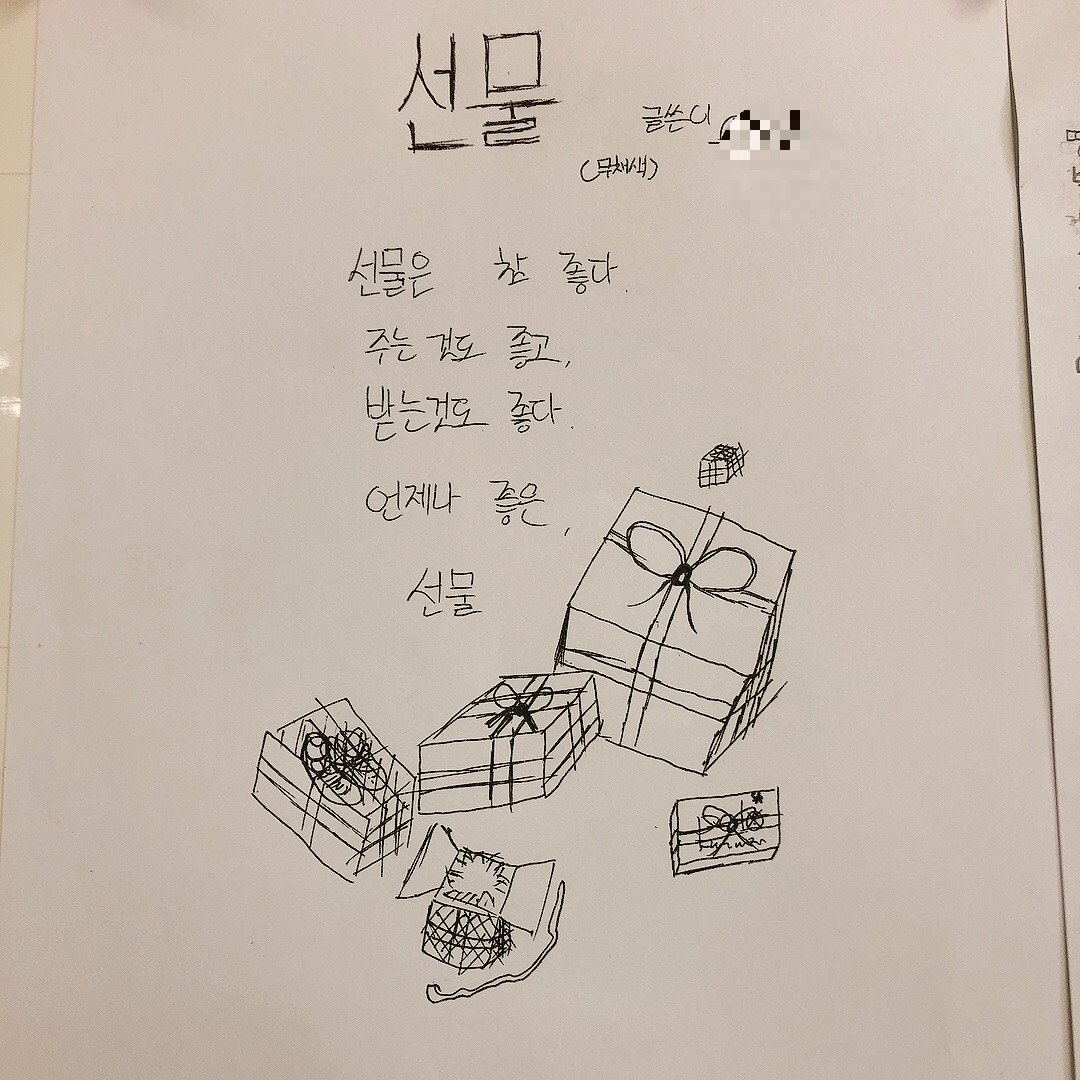 선물
글쓴이
(무채색)
선물은 참 좋다.
주는것도 좋고,
받는것도 좋다.
언제나 좋은,
선물